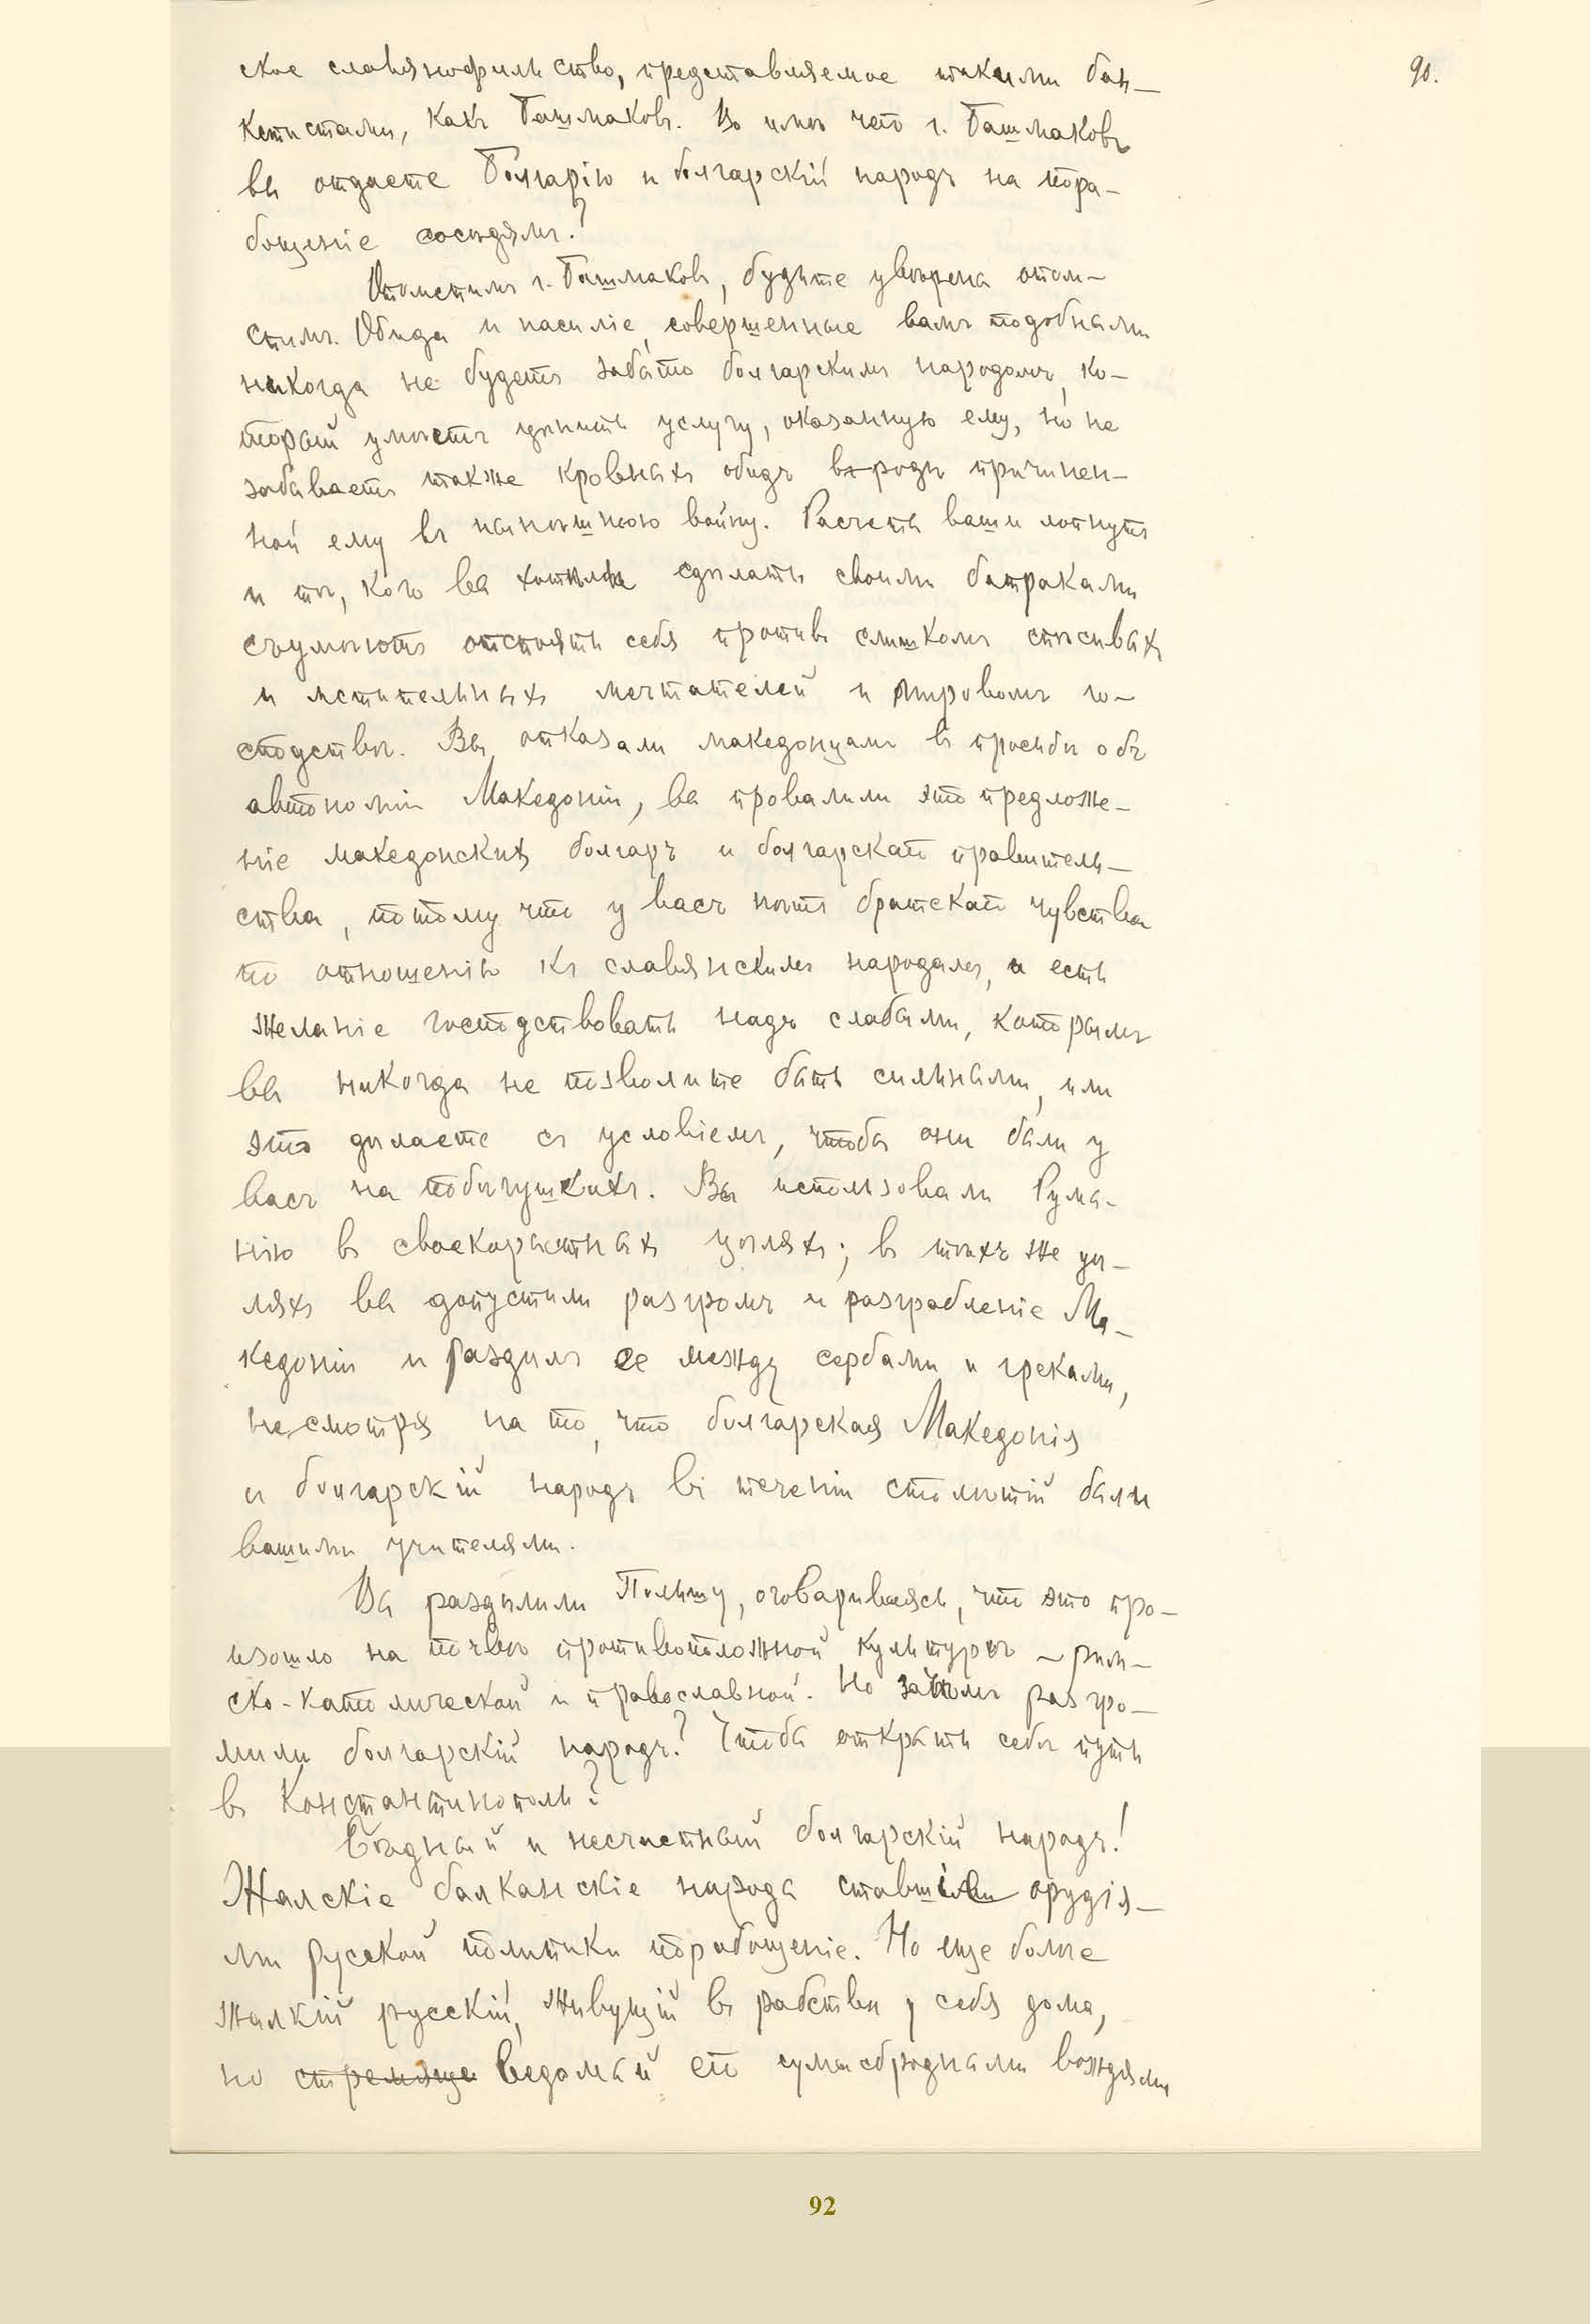 90.
ское славянофильство, представляемое такими бан-
кетистами, какъ Башмаковъ. Во имя чего г. Башмаковъ
вы отдаете Болгарію и болгарскій народъ на пора-
бощеніе сосѣдямъ?
Отомстимъ г. Башмаковъ, будьте увѣрены отом-
стимъ. Обида и насиліе, совершенные вамъ подобными
никогда не будетъ забыто болгарскимъ народомъ, ко-
торый умѣетъ цѣнить услугу, оказанную ему, но не
забываетъ также кровныхъ обидъ въ родѣ причинен-
ной ему въ нынѣшнюю войну. Расчеты ваши лопнутъ
и тѣ, кого вы хотѣли сдѣлать своими батраками
съумѣютъ отстоять себя противъ слишкомъ спѣсивыхъ
и мстительныхъ мечтателей и мировомъ го-
сподствѣ. Вы отказали македонцамъ въ просьбѣ объ
автономіи Македоніи, вы провалили это предложе-
ніе македонскихъ болгаръ и болгарскаго правитель-
ства, потому что у васъ нѣтъ братскаго чувства
по отношенію къ славянскимъ народамъ, а есть
желаніе господствовать надъ слабыми, которымъ
вы никогда не позволите быть сильными, или
это дѣлаете съ условіемъ, чтобы они были у
васъ на побѣгушкахъ. Вы использовали Румы-
нію въ своекорыстныхъ цѣляхъ; въ тѣхъ же цѣ-
ляхъ вы допустили разгромъ и разграбленіе Ма-
кедоніи и раздѣлъ ее между сербами и греками,
несмотря на то, что болгарская Македонія
и болгарскій народъ въ теченіи столѣтій были
вашими учителями.
Вы раздѣлили Польшу, оговариваясь, что это про-
изошло на почвѣ противоположной культуръ – рим-
ско-католической и православной. Но зачѣмъ разгро-
мили болгарскій народъ? Чтобы открыть себѣ путь
въ Константинополь?
Бѣдный и несчастный болгарскій народъ!
Жалскіе балканскіе народы ставшіе орудія-
ми русской политики порабощеніе. Но еще болѣе
жалкій русскій, живущій въ рабствѣ у себя дома,
но ведомый его сумасбродными вождями
92